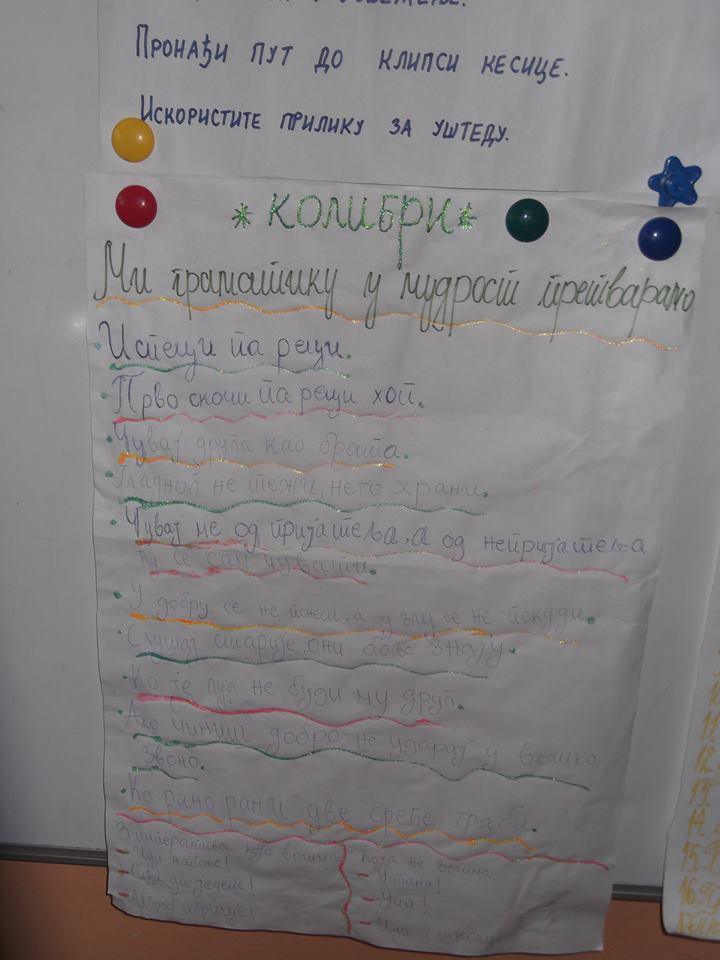 ПРОНАЂИ ПУТ ДО КЛИПСИ КЕСИЦЕ.
ИСКОРИСТИТЕ ПРИЛИКУ ЗА УШТЕДУ.
* КОЛИБРИ *
Ми граматику у мудрост претварамо
Испеци па реци.
Прво скочи па реци хоп.
Чувај друга као брата.
Гладног не тежи, него храни.
Чувај ме од пријатеља, а од непријатеља
ћу се сам чувати.
У добру се не понеси, а у злу се не покуди.
Слушај старије, они боље знају.
Ко је луд не буди му друг.
Ако чиниш добро не ударај у велико
звоно.
Ко рано рани две среће граби.
3 императива која волимо
- Иди напоље!
- да једеш!
- Играј игрице!
Која не волимо:
- Устани!
- Учи!
- Иди у школу!
11.
12.
13.
14.
15.
16.